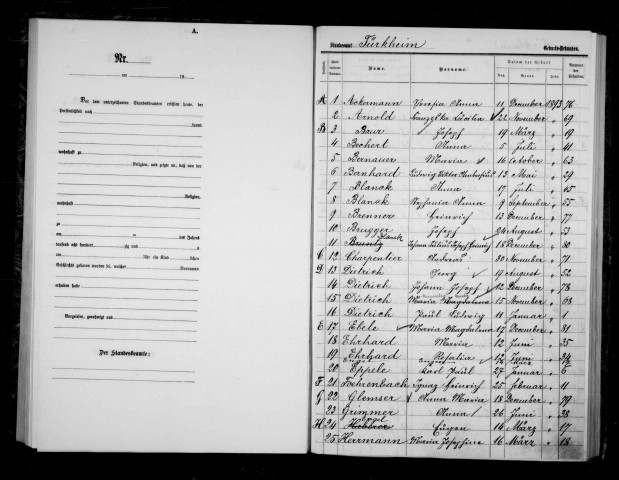 A.
Nr.
Vor dem unterzeichneten Standesbeamten erschien heute, der
Persönlichkeit nach
kannt,
wohnhaft zu
Religion, und zeigte an, daß von der
Religion,
wohnhaft
zu
am ten des Jahres
tausend acht hundert zig und
um Uhr ein Kind lichen
Geschlechts geboren worden sei, welches Vornamen
erhalten habe.
Vorgelesen, genehmigt und
Der Standesbeamte:
Standesamt Türkheim Geburts-Urkunden.
Name. Vorname. Datum der Geburt
Tag. Monat. Jahr.
A 1 Ackermann Anna 11 December 1893 76
2 Arnold 22 November " 69
B 3 Baur Josef 19 März " 19
4 Bechert Anna 5 Juli " 41
5 Bernauer Maria 16 October " 63
6 Bernhard Ludwig Viktor 13 Mai " 29
7 Blanck Anna 17 Juli " 45
8 Blanck Stefania Anna 9 September " 55
9 Brenner Heinrich 13 December " 77
10 Brugger Josef 24 August " 53
Blanck
11 Johann Julius Josef Heinrich 18 December " 80
C 12 Charpentier Andreas 20 November " 71
D 13 Dietrich Georg 19 August " 52
14 Dietrich Johann Josef 12 December " 78
15 Dietrich Maria Magdalena 15 November " 68
16 Dietrich Paul Ludwig 11 Januar " 1
E 17 Ebele Maria Magdalena 17 December " 81
18 Ehrhard Maria 12 Juni " 35
19 Ehrhard Rosalia 12 Juni " 34
20 Eppele Karl Paul 27 Januar " 6
F 21 Fehrenbach Ignaz Heinrich 25 Februar " 11
G 22 Glemser Anna Maria 18 December " 79
23 Grimmer Anna 26 Juni " 38
H 24 Eugen 14 März " 17
25 Herrmann Maria Josephine 16 März " 18